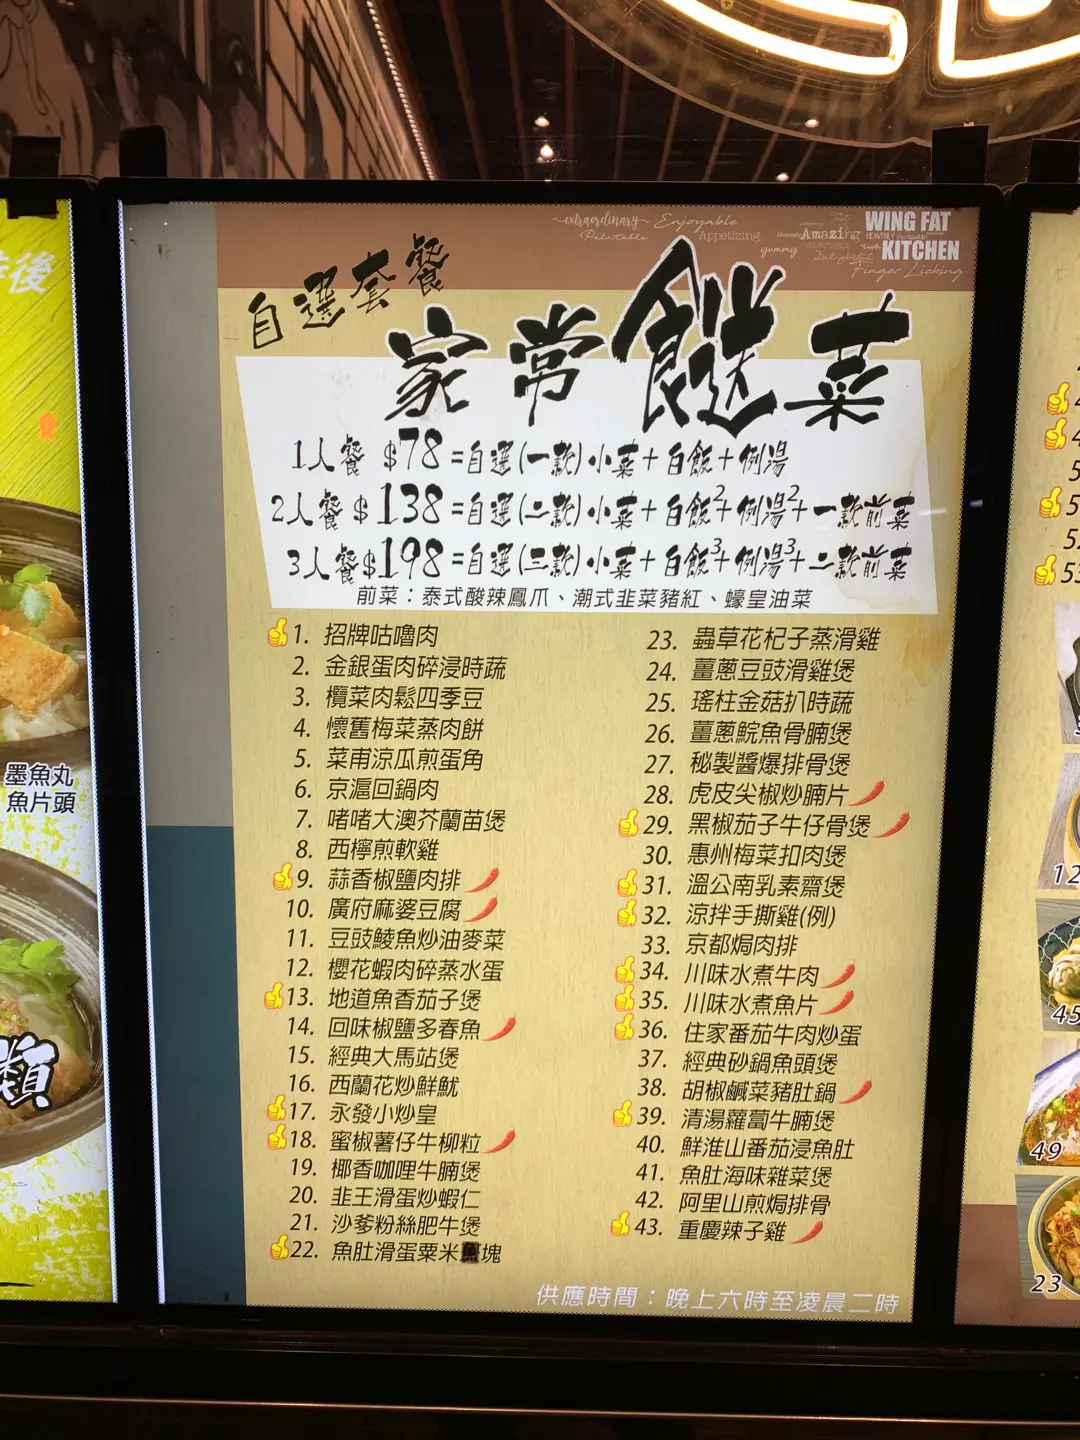 extraordinary Enjoyable
Palatable Appetizing Amazing
yummy Delightful
Finger Licking
WING FAT
KITCHEN
自選套餐
家常餸菜
1人餐 $78=自選(一款)小菜+白飯+例湯
2人餐 $138=自選(二款)小菜+白飯2+例湯2+一款前菜
3人餐 $198=自選(三款)小菜+白飯3+例湯3+二款前菜
前菜：泰式酸辣鳳爪、潮式韭菜豬紅、蠔皇油菜
1. 招牌咕嚕肉
2. 金銀蛋肉碎浸時蔬
3. 欖菜肉鬆四季豆
4. 懷舊梅菜蒸肉餅
5. 菜甫涼瓜煎蛋角
6. 京滬回鍋肉
7. 啫啫大澳芥蘭苗煲
8. 西檸煎軟雞
9. 蒜香椒鹽肉排
10. 廣府麻婆豆腐
11. 豆豉鯪魚炒油麥菜
12. 櫻花蝦肉碎蒸水蛋
13. 地道魚香茄子煲
14. 回味椒鹽多春魚
15. 經典大馬站煲
16. 西蘭花炒鮮魷
17. 永發小炒皇
18. 蜜椒薯仔牛柳粒
19. 椰香咖哩牛腩煲
20. 韭王滑蛋炒蝦仁
21. 沙爹粉絲肥牛煲
22. 魚肚滑蛋粟米魚塊
23. 蟲草花杞子蒸滑雞
24. 薑蔥豆豉滑雞煲
25. 瑤柱金菇扒時蔬
26. 薑蔥鯇魚骨腩煲
27. 秘製醬爆排骨煲
28. 虎皮尖椒炒腩片
29. 黑椒茄子牛仔骨煲
30. 惠州梅菜扣肉煲
31. 溫公南乳素齋煲
32. 涼拌手撕雞(例)
33. 京都焗肉排
34. 川味水煮牛肉
35. 川味水煮魚片
36. 住家番茄牛肉炒蛋
37. 經典砂鍋魚頭煲
38. 胡椒鹹菜豬肚鍋
39. 清湯蘿蔔牛腩煲
40. 鮮淮山番茄浸魚肚
41. 魚肚海味雜菜煲
42. 阿里山煎焗排骨
43. 重慶辣子雞
供應時間：晚上六時至凌晨二時
後
墨魚丸
魚片頭
類
12
45
49
23